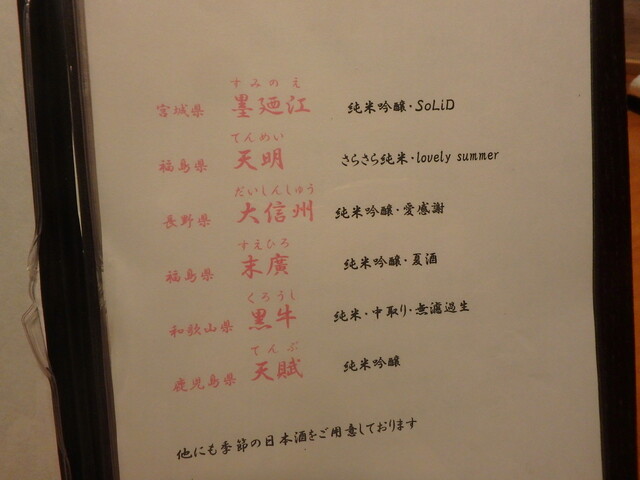 すみのえ
宮城県 墨廼江 純米吟醸・SoLiD
てんめい
福島県 天明 さらさら純米・lovely summer
だいしんしゅう
長野県 大信州 純米吟醸・愛感謝
すえひろ
福島県 末廣 純米吟醸・夏酒
くろうし
和歌山県 黒牛 純米・中取り・無濾過生
てんぶ
鹿児島県 天賦 純米吟醸
他にも季節の日本酒をご用意しております